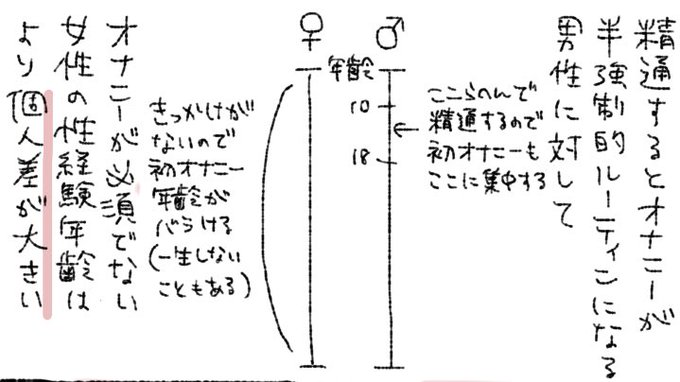 精通するとオナニーが
半強制的ルーティンになる
男性に対して
♂
♀
年齢
10
18
ここらへんで
精通するので
初オナニーも
ここに集中する
きっかけが
ないので
初オナニー
年齢が
バラける
(一生しない
こともある)
オナニーが必須でない
女性の性経験年齢は
より個人差が大きい